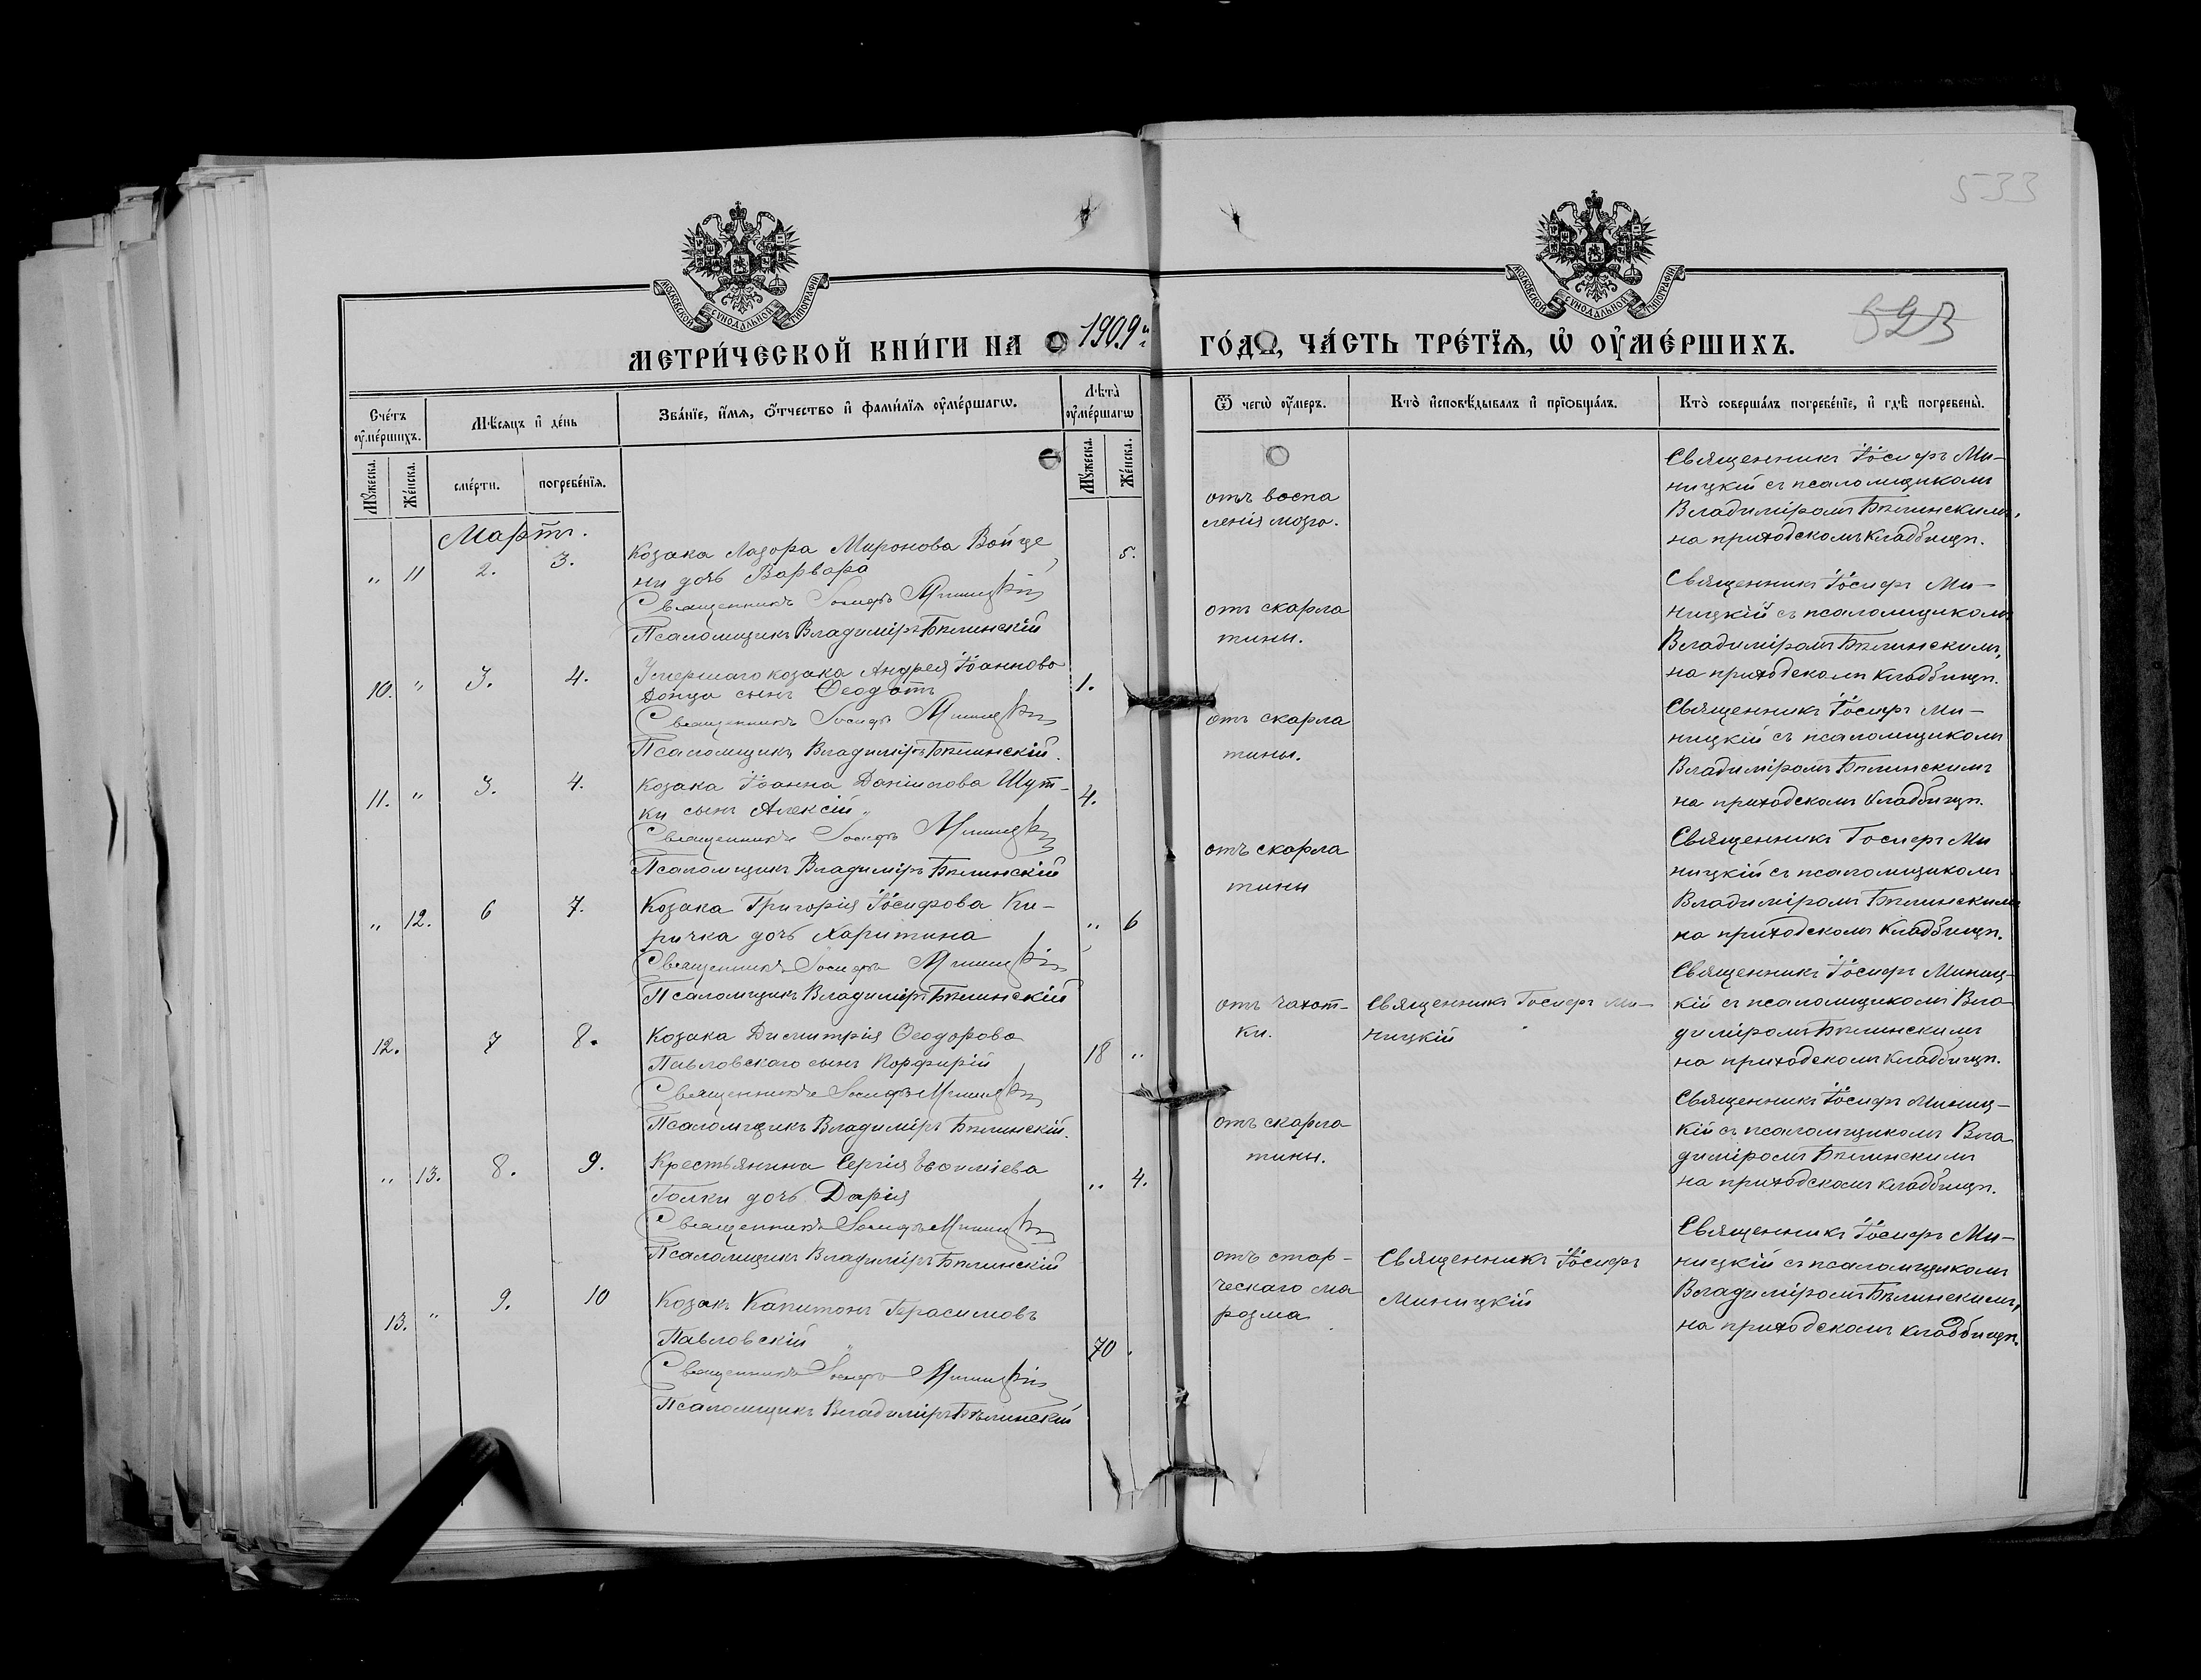 533
523
МОСКОВСКОЙ СѴНОДАЛЬНОЙ ТИПОГРАФІИ
МОСКОВСКОЙ СѴНОДАЛЬНОЙ ТИПОГРАФІИ
МЕТРИ́ЧЕСКОЙ КНИ́ГИ НА 1909й ГО́ДЪ, ЧА́СТЬ ТРЕ́ТІѦ, Ѡ҆ ОУ҆МЕ́РШИХЪ.
Сче́тъ оу҆ме́ршихъ.
Мꙋ́жеска.
Же́нска.
Мѣ́сяцъ и҆ де́нь
сме́рти.
погребе́нїѧ.
Зва́нїе, и҆́мѧ, ѻ҆́тчество и҆ фами́лїѧ оу҆ме́ршагѡ.
Лѣ́та оу҆ме́ршагѡ
Мꙋ́жеска.
Же́нска.
Ѿ чегѡ̀ оу҆́меръ.
Кто̀ и҆сповѣ́дывалъ и҆ прїѡбща́лъ.
Кто̀ соверша́лъ погребе́нїе, и҆ гдѣ̀ погребены̀.
Мартъ.
„ 11 2. 3.
Козака Лазора Миронова Войце
ни дочь Варвара
5.
Священникъ Іосифъ Миницкій
Псаломщикъ Владиміръ Бѣлинскій
отъ воспа
ленія мозга.
Священникъ Іосифъ Ми-
ницкій съ псаломщикомъ
Владиміромъ Бѣлинскимъ,
на приходскомъ кладбищѣ.
10. „ 3. 4.
Умершаго козака Андрея Іоаннова
Донца сынъ Ѳеодотъ
1.
Священникъ Іосифъ Миницкій
Псаломщикъ Владиміръ Бѣлинскій.
отъ скарла
тины.
Священникъ Іосифъ Ми-
ницкій съ псаломщикомъ
Владиміромъ Бѣлинскимъ,
на приходскомъ кладбищѣ.
11. „ 3. 4.
Козака Іоанна Даніилова Шут-
ки сынъ Алексій „
4.
Священникъ Іосифъ Миницкій
Псаломщикъ Владиміръ Бѣлинскій
отъ скарла
тины.
Священникъ Іосифъ Ми-
ницкій съ псаломщикомъ
Владиміромъ Бѣлинскимъ
на приходскомъ кладбищѣ.
„ 12. 6 7.
Козака Григорія Іосифова Ки-
ричка дочь Харитина
„ 6
Священникъ Іосифъ Миницкій
Псаломщикъ Владиміръ Бѣлинскій
отъ скарла
тины
Священникъ Іосифъ Ми
ницкій съ псаломщикомъ
Владиміромъ Бѣлинскимъ
на приходскомъ кладбищѣ.
12. 7 8.
Козака Димитрія Ѳеодорова
Павловскаго сынъ Порфирій
18 „
Священникъ Іосифъ Миницкій
Псаломщикъ Владиміръ Бѣлинскій.
отъ чахот-
ки.
Священникъ Іосифъ Ми-
ницкій
Священникъ Іосифъ Миниц-
кій съ псаломщикомъ Вла-
диміромъ Бѣлинскимъ
на приходскомъ кладбищѣ.
„ 13. 8. 9.
Крестьянина Сергія Евѳиміева
Голки дочь Дарія
„ 4.
Священникъ Іосифъ Миницкій
Псаломщикъ Владиміръ Бѣлинскій
отъ скарла
тины.
Священникъ Іосифъ Миниц-
кій съ псаломщикомъ Вла
диміромъ Бѣлинскимъ
на приходскомъ кладбищѣ.
13. „ 9. 10
Козакъ Капитонъ Герасимовъ
Павловскій
70
Священникъ Іосифъ Миницкій
Псаломщикъ Владиміръ Бѣлинскій
отъ стар-
ческаго ма
розма
Священникъ Іосифъ
Миницкій
Священникъ Іосифъ Ми-
ницкій съ псаломщикомъ
Владиміромъ Бѣлинскимъ,
на приходскомъ кладбищѣ.